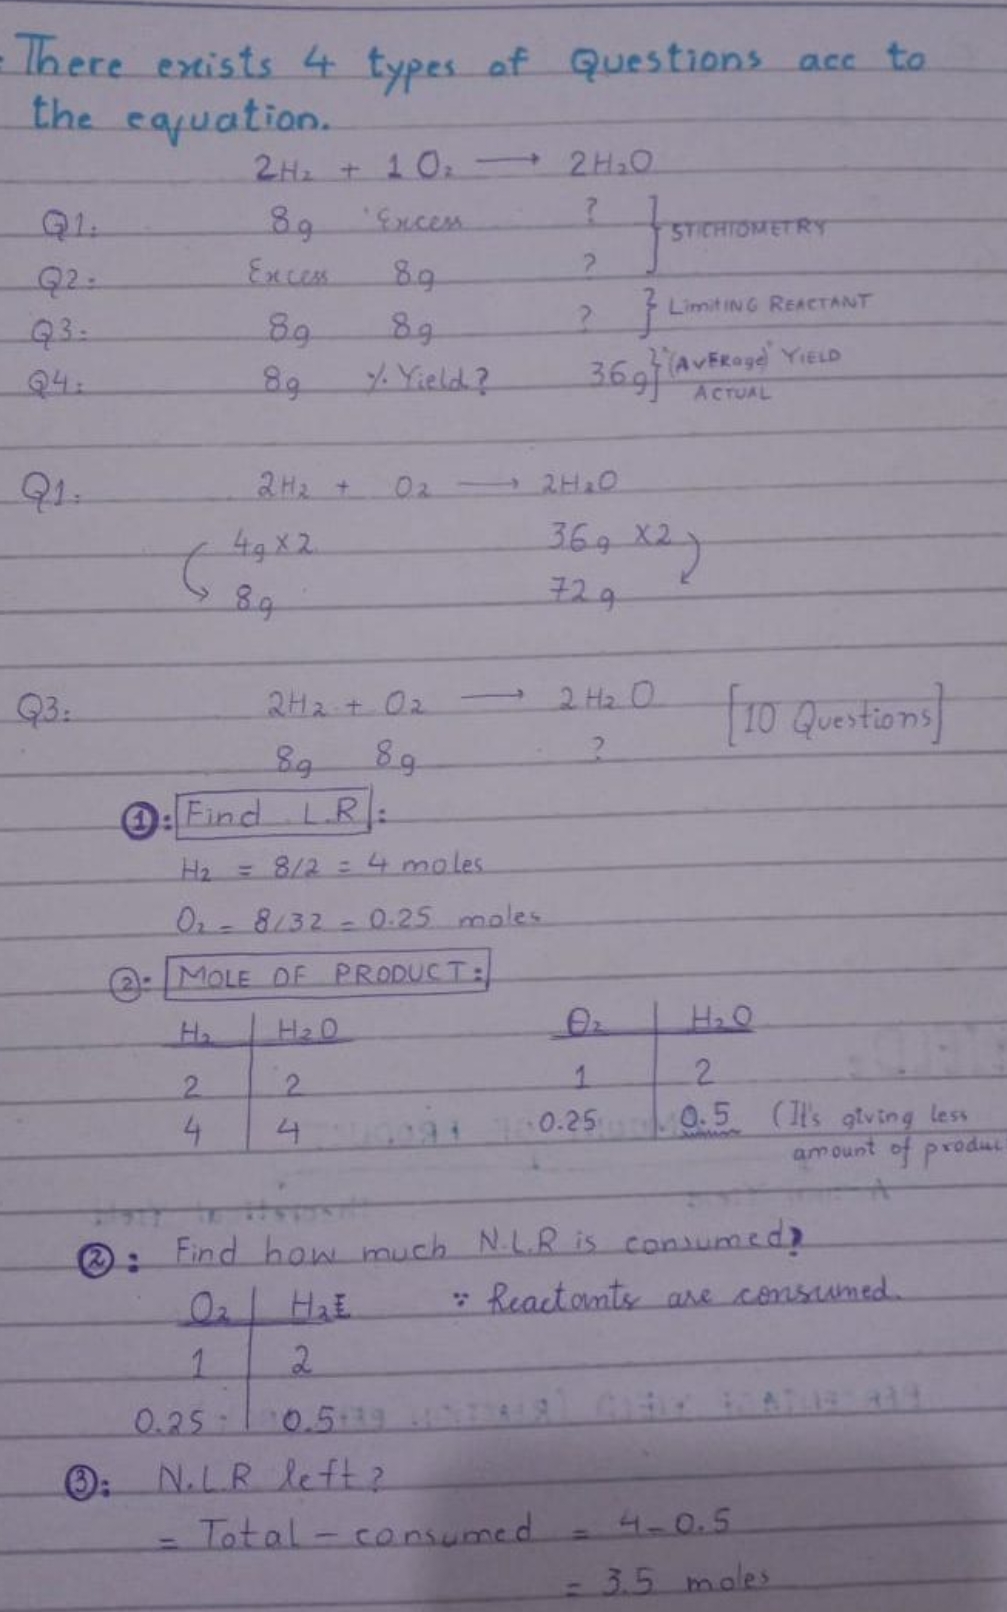 There exists 4 types of Questions acc to
the equation.
2H₂ + 1O₂ ⟶ 2H₂O
Q1: 8g Excess ? } STICHIOMETRY
Q2: Excess 8g ?
Q3: 8g 8g ? } LimitING REACTANT
Q4: 8g % Yield? 36g } "(AVERage)" YIELD
ACTUAL
Q1: 2H₂ + O₂ ⟶ 2H₂O
4g x2 36g x2
8g 72g
Q3: 2H₂ + O₂ ⟶ 2H₂O [10 Questions]
8g 8g ?
①: Find L.R :
H₂ = 8/2 = 4 moles
O₂ = 8/32 = 0.25 moles
②: MOLE OF PRODUCT:
H₂ | H₂O O₂ | H₂O
2 | 2 1 | 2
4 | 4 0.25 | 0.5 (It's giving less
amount of produc
②: Find how much N.L.R is consumed?
O₂ | H₂ ∵ Reactants are consumed.
1 | 2
0.25 | 0.5
③: N.L.R left?
= Total – consumed = 4-0.5
= 3.5 moles